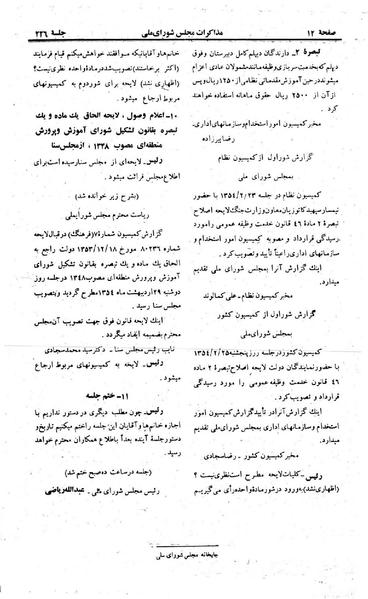 صفحه ۱۲
مذاکرات مجلس شورای ملی
جلسه ۲۲۶
تبصره ۲ـ دارندگان دیپلم کامل دبیرستان وفوق
دیپلم که بخدمت سربازی وظیفه مانند مشمولان عادی اعزام
میشوند در حین آموزش مقدماتی نظامی ۱۲۵۰ ریال وپس
از آن ۲۵۰۰ ریال حقوق ماهانه استفاده خواهند
کرد.
مخبر کمیسیون امور استخدام وسازمانهای اداری ـ
رضا پیرزاده
گزارش شوراول از کمیسیون نظام
بمجلس شورای ملی
کمیسیون نظام در جلسه ۱۳۵۴/۲/۲۳ با حضور
تیمسار سپهبد کاتوزیان معاون وزارت جنگ لایحه اصلاح
تبصره ۲ ماده ۴۶ قانون خدمت وظیفه عمومی را مورد
رسیدگی قرارداد و مصوبه کمیسیون امور استخدام و
سازمانهای اداری را عیناً تأیید وتصویب کرد.
اینک گزارش آنرا بمجلس شورای ملی تقدیم
میدارد.
مخبر کمیسیون نظام ـ علی کمالوند
گزارش شوراول از کمیسیون کشور
بمجلس شورای ملی
کمیسیون کشور در جلسه روز پنجشنبه ۱۳۵۴/۲/۲۵
با حضور نمایندگان دولت لایحه اصلاح تبصرهٔ ۲ ماده
۴۶ قانون خدمت وظیفه عمومی را مورد رسیدگی
قرارداد و تصویب کرد.
اینک گزارش آنرا در تأیید گزارش کمیسیون امور
استخدام وسازمانهای اداری بمجلس شورای ملی تقدیم
میدارد.
مخبر کمیسیون کشور ـ رضا سجادی
رئیس ـ کلیات لایحه مطرح است نظری نیست ؟
(اظهاری نشد) به ورود در شور ماده واحده رأی می گیریم
خانم هاو آقایانیکه موافقند خواهش میکنم قیام فرمایند
(اکثر برخاستند) تصویب شد در مادهٔ واحده نظری نیست؟
(اظهاری نشد) لایحه برای شور دوم به کمیسیونهای
مربوط ارجاع میشود.
۱۰ـ اعلام وصول، لایحه الحاق یک ماده و یک
تبصره بقانون تشکیل شورای آموزش و پرورش
منطقه ای مصوب ۱۳۴۸، از مجلس سنا
رئیس ـ لایحه ای از مجلس سنا رسیده است برای
اطلاع مجلس قرائت میشود.
(بشرح زیر خوانده شد)
ریاست محترم مجلس شورایملی
گزارش کمیسیون شماره ۷ (فرهنگ) در قبال لایحه
شماره ۸۰۲۳۶ مورخ ۱۳۵۳/۱۲/۱۸ دولت راجع به
الحاق یک ماده و یک تبصره بقانون تشکیل شورای
آموزش وپرورش منطقه ای مصوب ۱۳۴۸ در جلسه روز
دوشنبه ۲۹ اردیبهشت ماه ۱۳۵۴ مطرح گردید وبتصویب
مجلس سنا رسید.
اینک لایحه قانون فوق جهت تصویب آن مجلس
محترم بضمیمه ایفاد میگردد.
نایب رئیس مجلس سنا ـ دکتر سید محمد سجادی
رئیس ـ لایحه به کمیسیونهای مربوط ارجاع
میشود.
۱۱ـ ختم جلسه
رئیس ـ چون مطلب دیگری در دستور نداریم با
اجازه خانم هاو آقایان این جلسه را ختم میکنیم تاریخ و
دستور جلسهٔ آینده بعداً باطلاع همکاران محترم خواهد
رسید.
(جلسه در ساعت ده صبح ختم شد)
رئیس مجلس شورای ملی ـ عبدالله ریاضی
چاپخانه مجلس شورای ملی